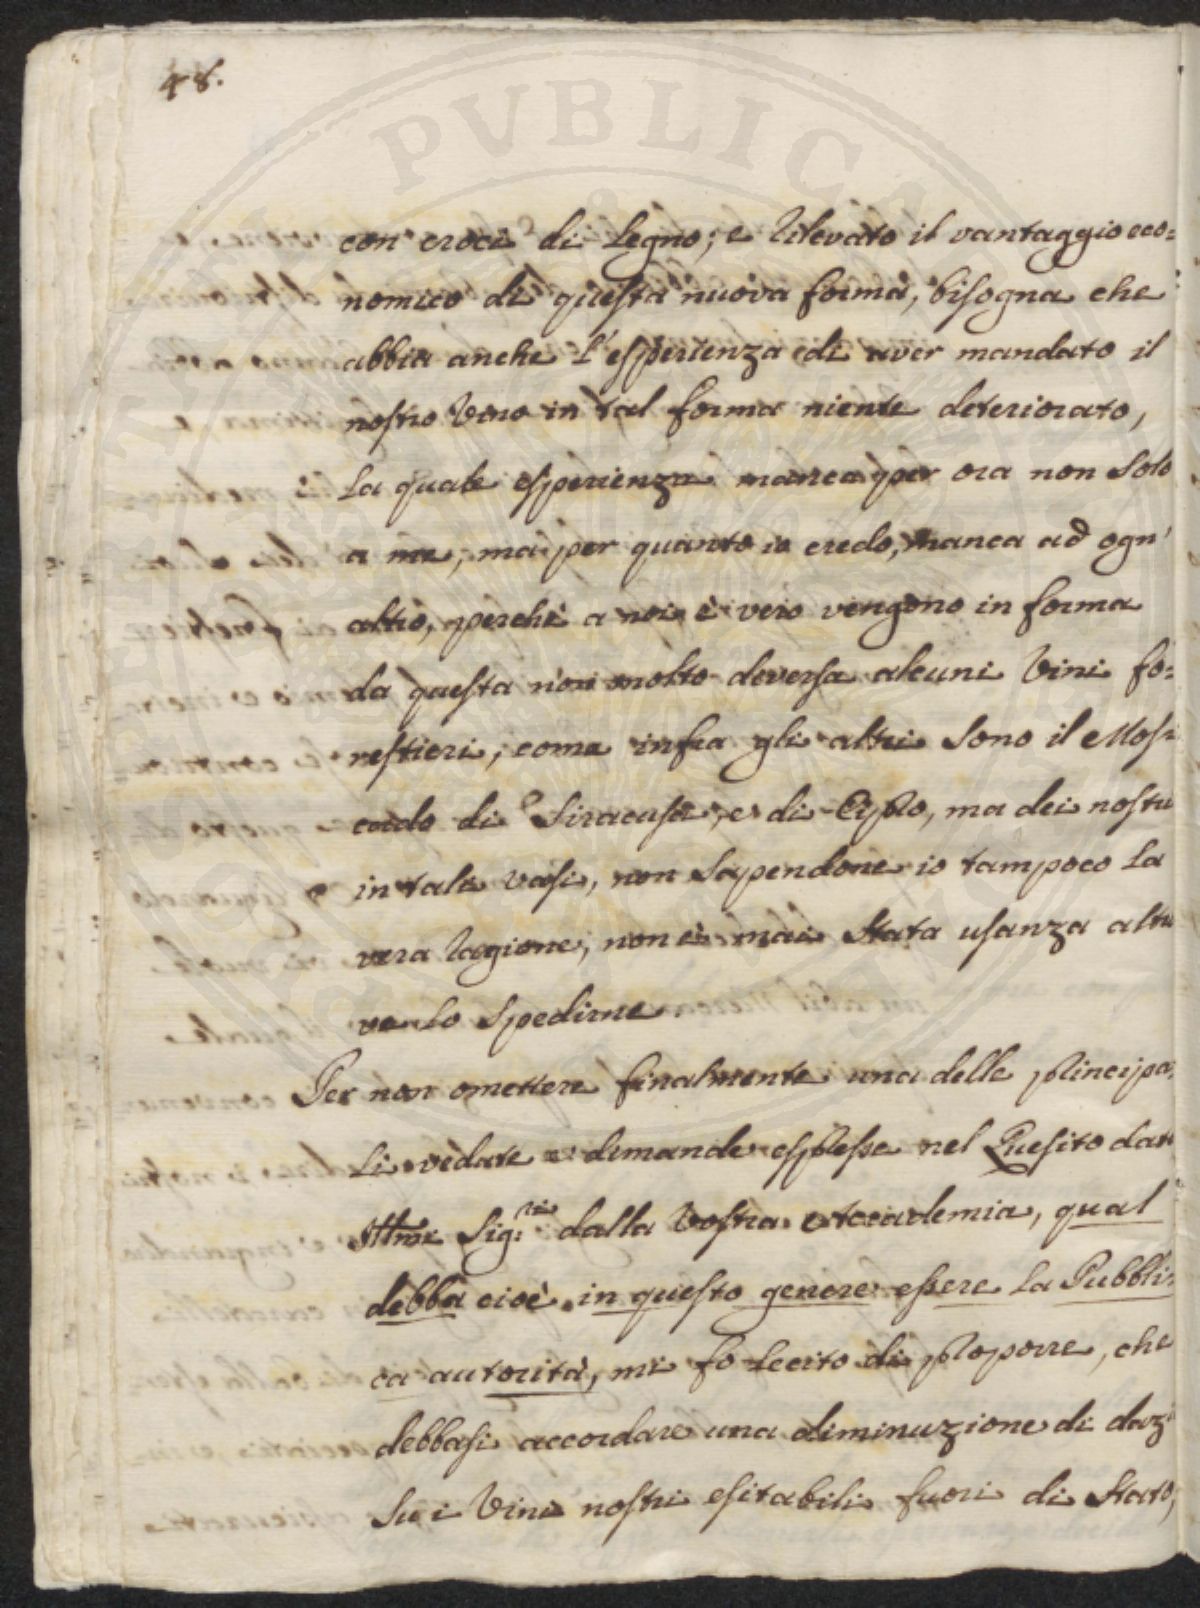 48.
con croci di Legno; e rilevato il vantaggio eco=
nomico di questa nuova forma, bisogna che
abbia anche l'esperienza di aver mandato il
nostro Vino in tal forma niente deteriorato,
La quale esperienza manca per ora non solo
a me, ma per quanto io credo, manca ad ogn'
altro, perchè a noi è vero vengono in forma
da questa non molto deversa alcuni Vini fo=
restieri, come infra gli altri sono il Mos=
cado di Siracusa, e di Cipro, ma dei nostri
in tali vasi, non sapendone io tampoco la
vera ragione, non è mai stata usanza altro
ve lo spedirne
Per non omettere finalmente una delle principa=
li vedute e dimande espresse nel Quesito dato
Illmi Sig:ri dalla Vostra Accademia, qual
debba cioè in questo genere essere la Pubbli=
ca autorità, mi fo lecito di proporre, che
debbasi accordare una diminuzione di dazi
su i Vini nostri esitabili fuori di Stato,
PUBLICA